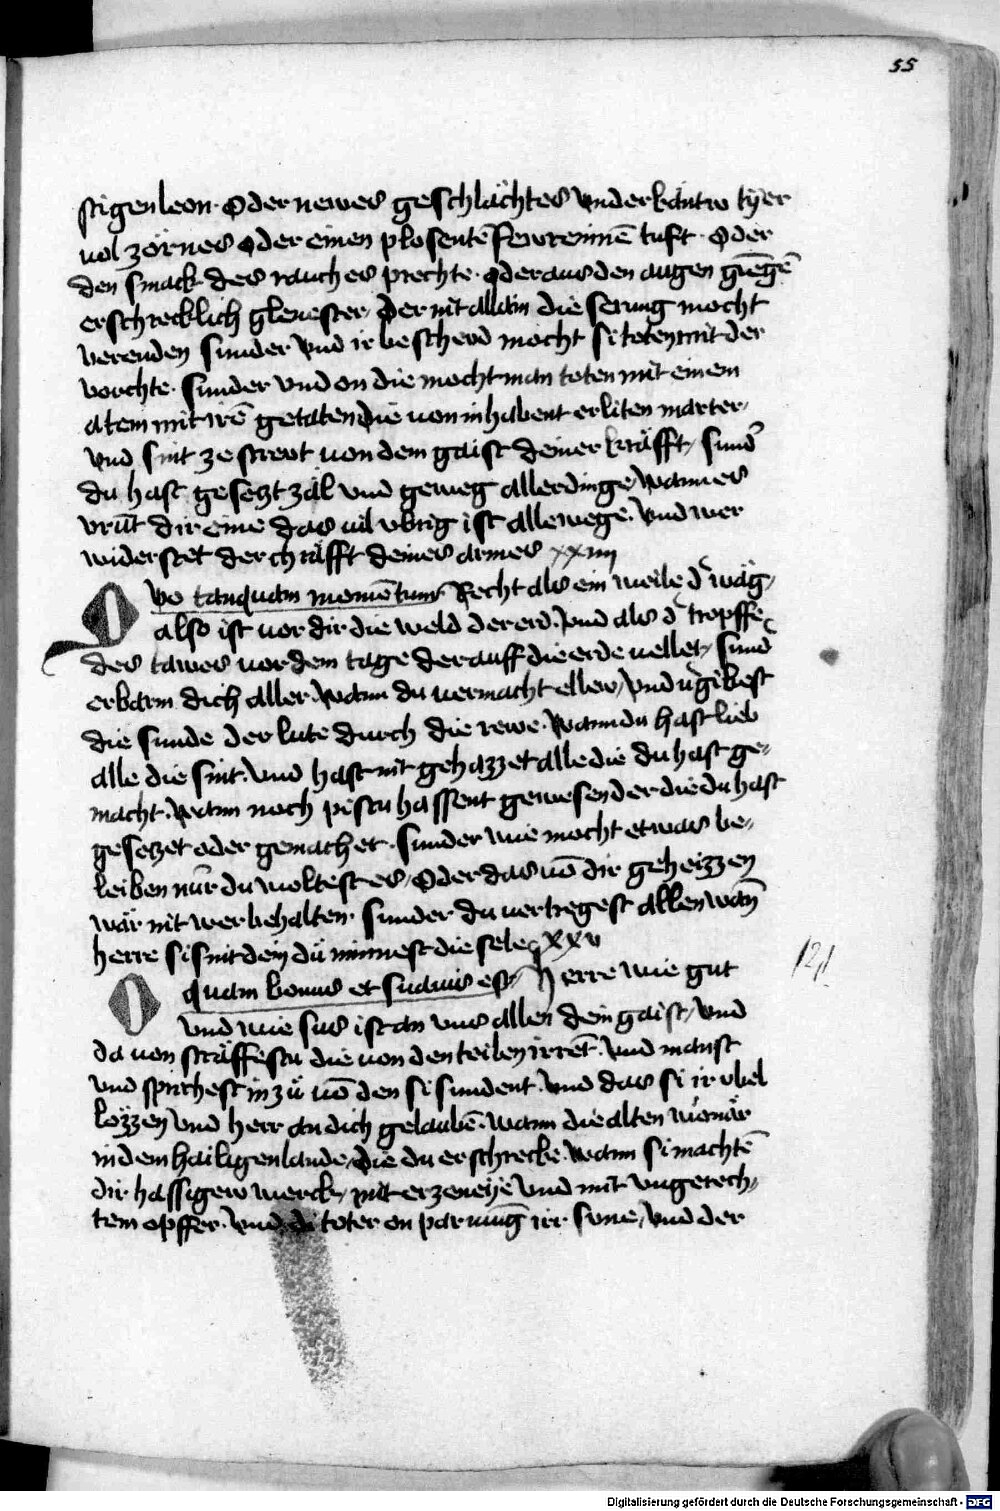 55
stigen leon. Oder newes geschlächtes vnderkäntw tyer
vol zörnes oder einen plosentē fewreinnē tuft. Oder
den smack des rauches prechte. oder aus den augen giēgē
erschrecklich glenester. Der nit allain die serung mocht
verenden sunder vnd ir bescherd mocht si toten mit der
vorchte. sunder vnd on die mocht man toten mit einem
atem mit irē getaten die von in habent erliten marter,
vnd sint zestrevt von dem gaist deiner kräfft, sund
du hast gesetzt zäl vnd geweg aller dinge, wann es
vrūt dir eine das vil vbrig ist allewege. vnd wer
widerstet der chräfft deines armes xxiiii
Qvo tanquam momētum. Recht als ein weile d wäg,
also ist vor dir die weld der erd. vnd als d tropffe
des tawes vor dem tage der auff die erde vellet, sund
erbarm dich aller. wann du vermacht ellew, vnd v͛gibest
die sunde der lute durch die rewe. wann du hast lieb
alle die sint. vnd hast nit gehazzet alle die du hast ge-
macht. wann noch pistu hassent gewesen der die du hast
gesetzet oder gemachet. sunder wie mocht etwas be-
leiben nür du woltest es, Oder das vō dir geheizzen
wär nit wer behalten. sunder du vertregest allen wān
herre si sint dein dü minnest die sele xxv
O quam bonus et suavis est. Herre wie gut
vnd wie sus ist an vns allen dein gaist, vnd
da von sträffestu die von den teilen irrēt. vnd manst
vnd sprichest in zü vō den si sundent. vnd das si ir vbel
lozzen vnd herr an dich gelaubē. wann die alten womär
in dem hailigen lande, die du erschrecke. wann si machtē
dir hassigew werck, mit erzeneye vnd mit vngerech-
tem opffer. vnd di toter on parmūg irr sone, vnd der
121
Digitalisierung gefördert durch die Deutsche Forschungsgemeinschaft - DFG